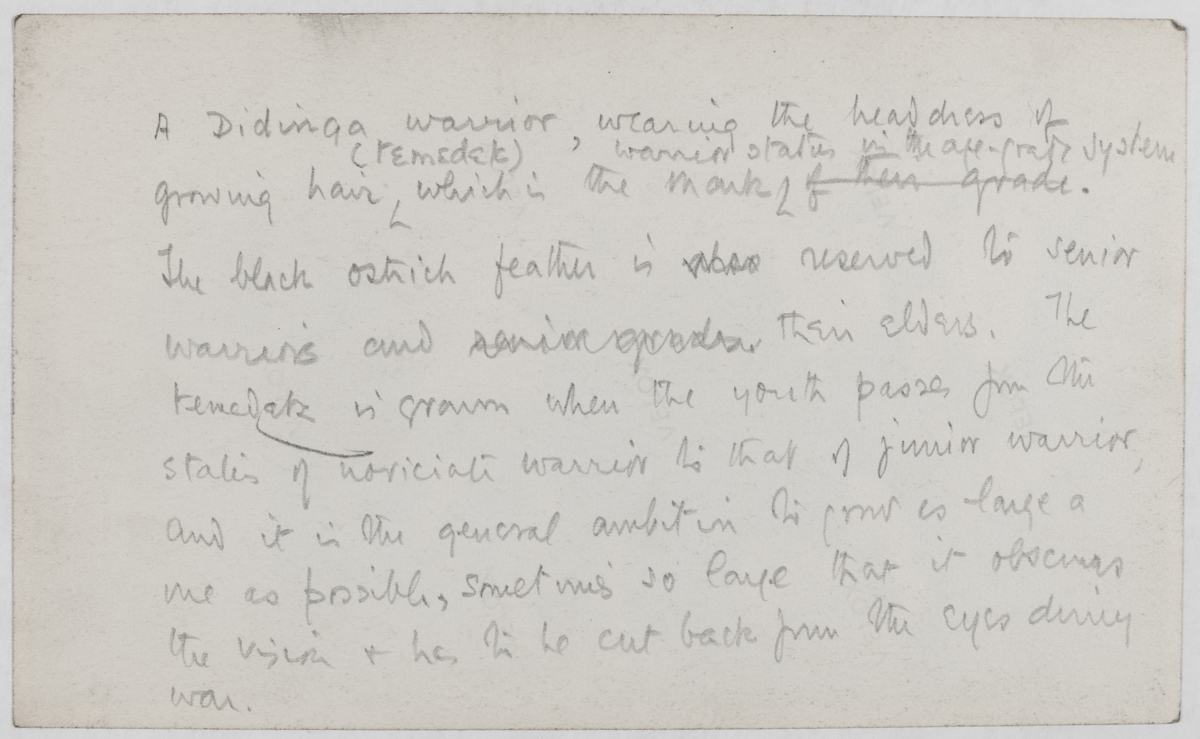 A Didinga warrior, wearing the headdress of
(temedek) warrior status in the age-grade system
growing hair, which is the mark of their grade.
The black ostrich feather is also reserved to senior
warriors and senior grades. their elders. The
temedek is grown when the youth passes from the
status of noviciate warrior to that of junior warrior,
and it is the general ambition to grow as large a
one as possible, sometimes so large that it obscures
the vision + has to be cut back from the eyes during
war.